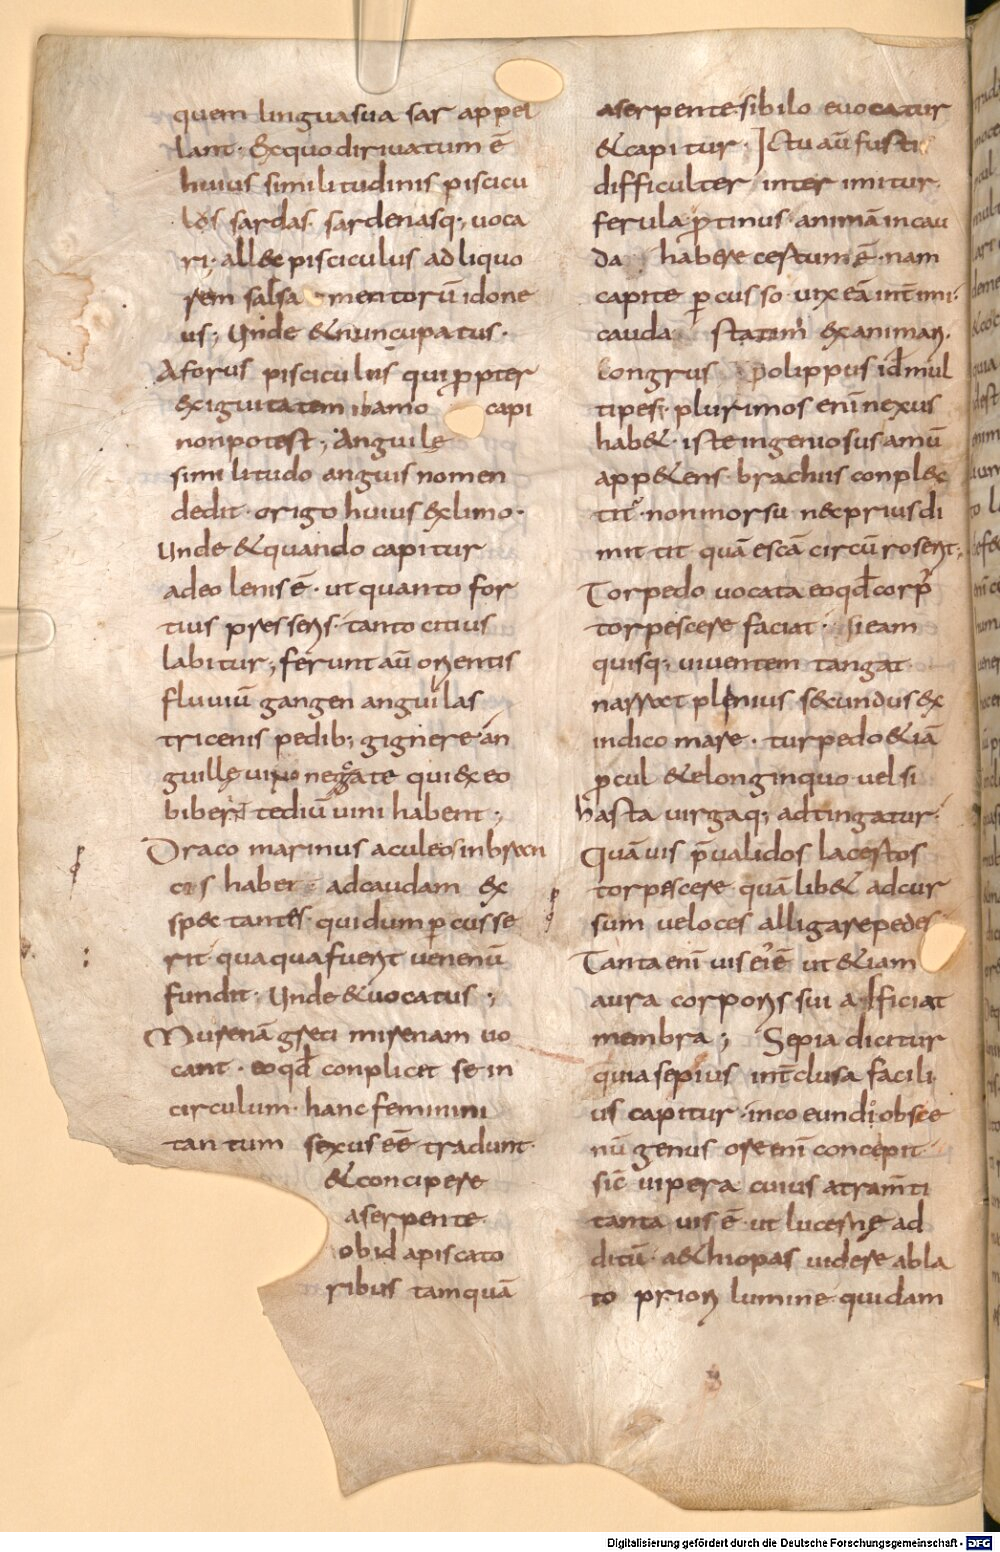 quem linguasua sar appel
lant· &xquo dirivatum ē
huius similitudinis piscicu
los sardas· sardenasq; uoca
ri· all&c pisciculus adliquo
rem salsa mentorū idone
us; Unde &nuncupatus·
Aforus pisciculus qui ꝓpter
&xiguitatem ibamo capi
nonpotest; Anguile
similitudo anguis nomen
dedit· origo huius &xlimo·
Unde &quando capitur
adeo lenis ē· ut quanto for
tius presseris· tanto citius
labitur; ferunt aū orientis
fluuiū gangen anguilas
tricenis pedib; gignere an
guillę uino negate qui&xeo
biberit tediū uini habent;
Draco marinus aculeos inbracn
cis habet adcaudam &x
sp&ctantes· quidum ꝑcusse
rit quaqua fuerit uenenū
fundit; Unde &uocatus;
Murenā greci mirenam uo
cant· eoqđ conplicet sein
circulum· hanc feminini
tantum sexus eē tradunt·
&concipere
aserpente
ob id apiscato
ribus tamquā
aserpente sibilo euocatur
&capitur· Ictu aū fustis
difficulter interimitur
ferula ꝓtinus· animā incau
da habere certum ē· nam
capite ꝑcusso uix eā int̄imi·
cauda statim &xanimari·
Congrus Polippus id mul
tipes; plurimos enī nexus
hab& iste ingeniosus amū
app&ens brachiis conpl&c
titur· nonmorsu n&cprius di
mittit quā escā circūroserit;
Torpedo uocata eoqđ corpꝰ
torpescere faciat· sieam
quisq; uiuentem tangat·
narrat plenius s&cundus &x
indico mare· turpedo &iā
ꝓcul &elonginquo uel si
hasta uirgaq; adtingatur·
Quāuis p̄ualidos lacertos
torpescere quālib& adcur
sum ueloces alligare pedes
Tanta enī uis ei ē ut &iam
aura corporis sui afficiat
membra; Sepia dicitur
quia sepius int̄clusa facili
us capitur· incoeundi obsce
nū genus ore enī concepit
sic̄ uipera cuius atram̄ti
tanta uis ē· ut lucerne ad
ditū a&hiopas uidere abla
to priori lumine quidam
Digitalisierung gefördert durch die Deutsche Forschungsgemeinschaft - DFG